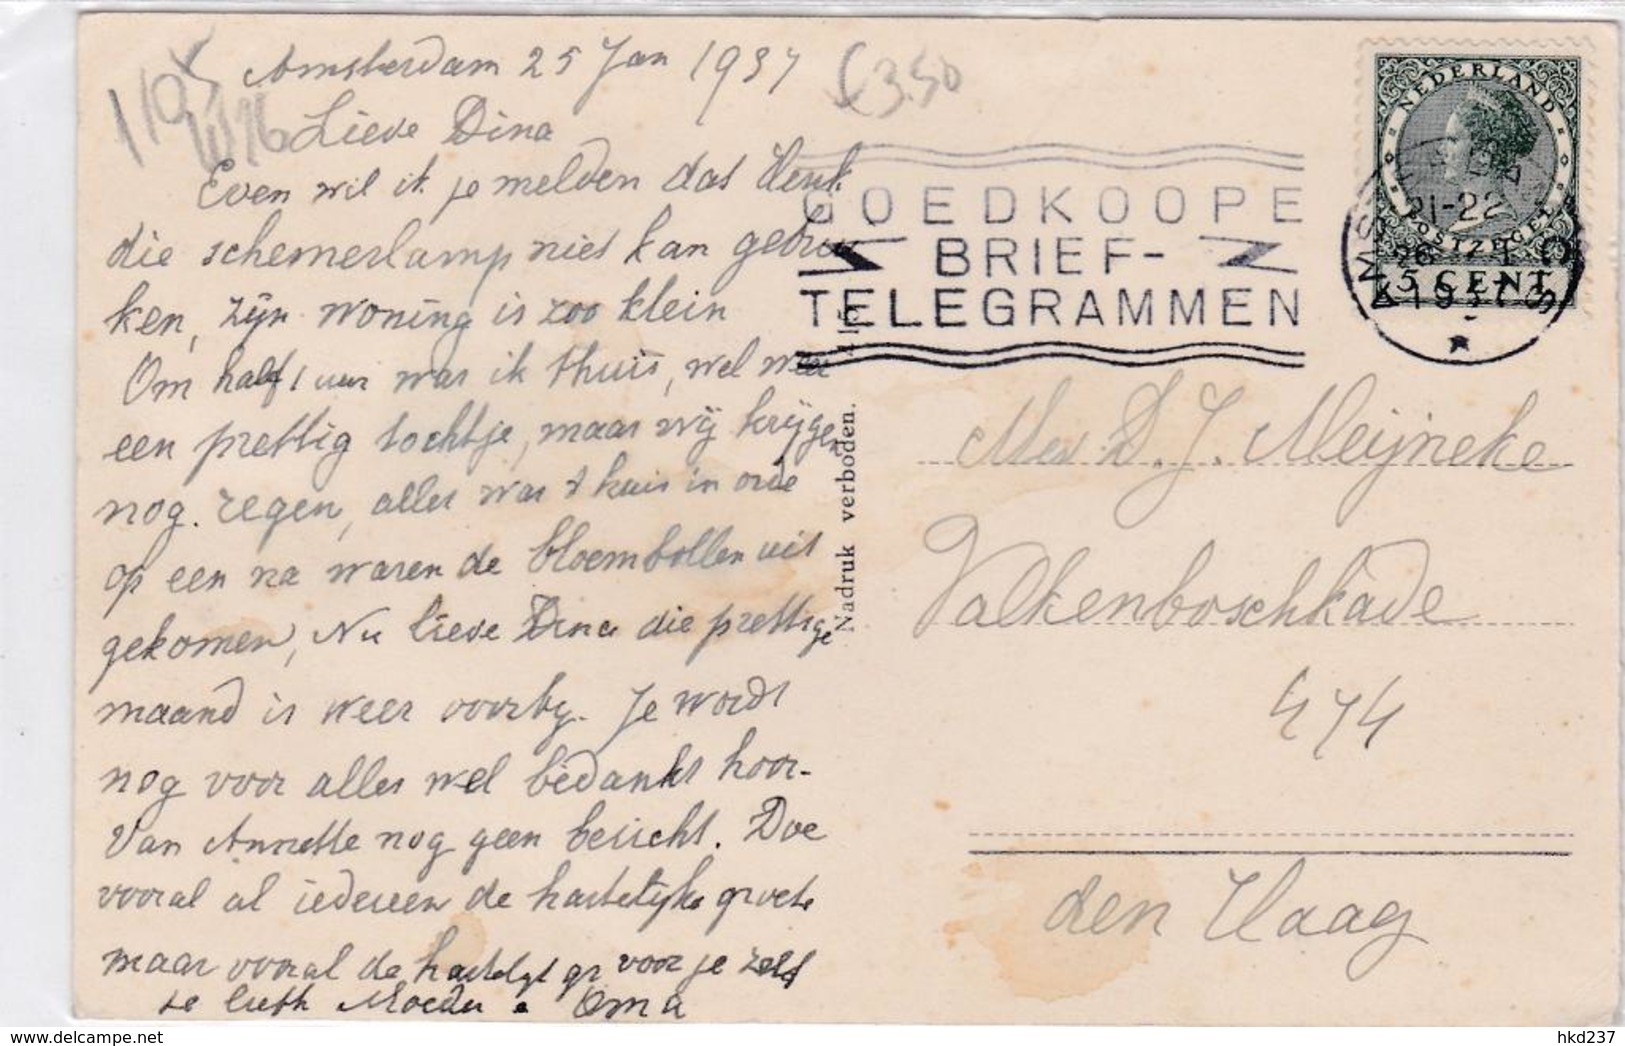 Amsterdam 25 Jan 1937
Lieve Dina
Even wil ik je melden dat Henk
die schemerlamp niet kan gebrui
ken, zijn woning is zoo klein
Om half 1 uur was ik thuis, wel weer
een prettig tochtje, maar wij krijgen
nog regen, alles was t huis in orde
op een na waren de bloembollen uit
gekomen, Nu lieve Dina die prettige
maand is weer voorby. Je wordt
nog voor alles wel bedankt hoor-
Van Annette nog geen bericht. Doe
vooral al iedereen de hartelijke groete
maar vooral de hartelyk gr voor je zelf
je liefh Moeder • Oma
€3.50
GOEDKOOPE
BRIEF-
TELEGRAMMEN
NEDERLAND
POSTZEGEL
5 CENT
AMSTERDAM
21-22
26 I
1937
Nadruk verboden.
Mev D. J. Meijneke
Valkenboschkade
474
den Haag
hkd237